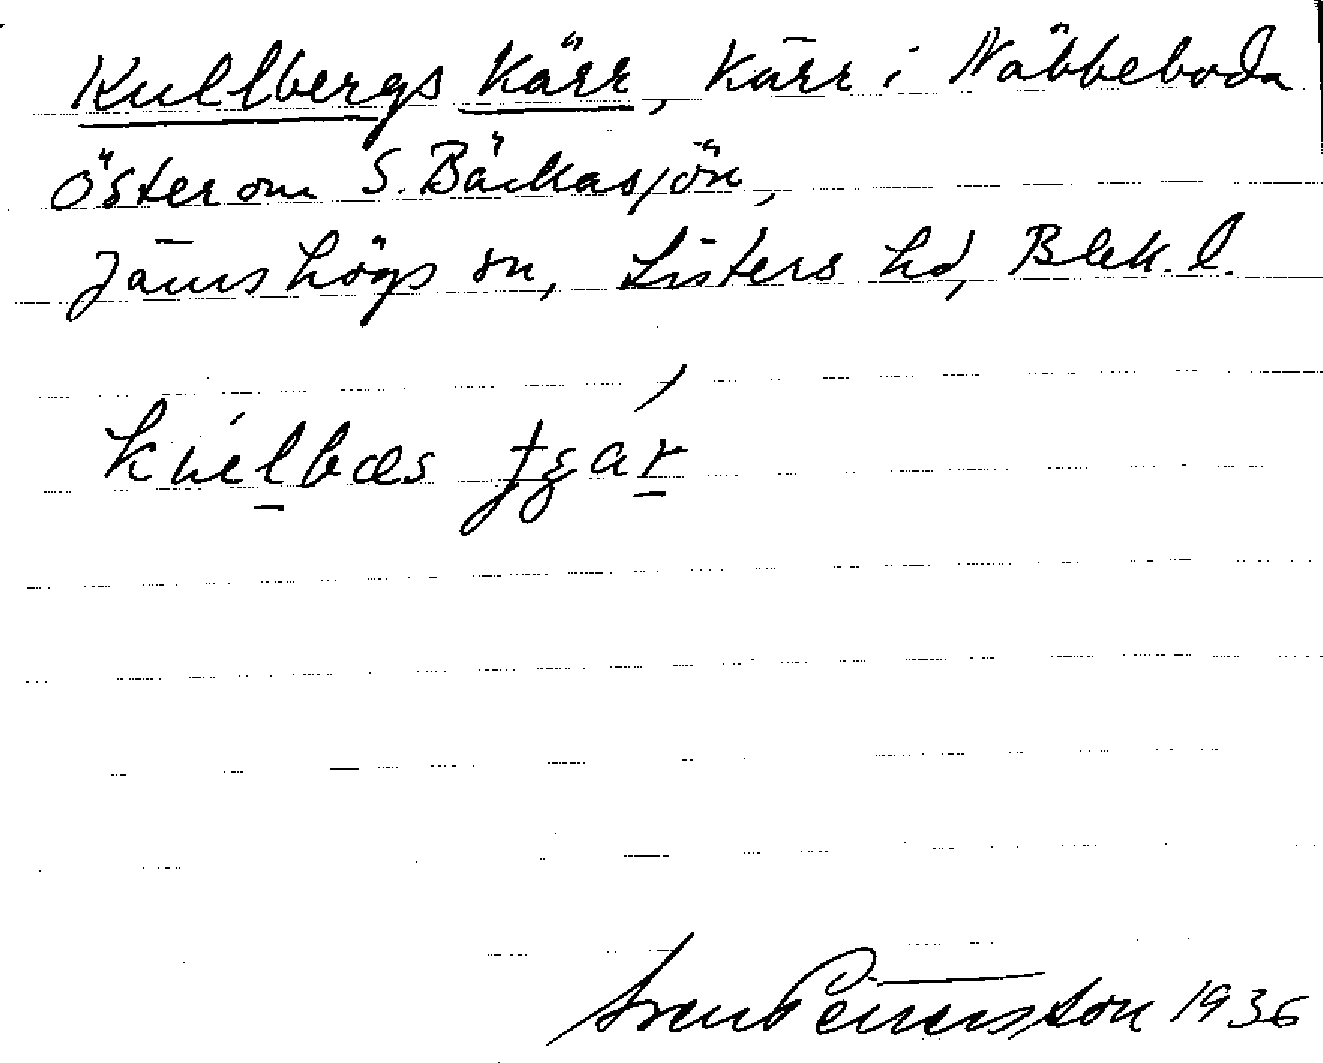 Kullbergs Kärr, Kärr i Näbbeboda
Öster om S. Bäckasjön,
Jämshögs sn, Listers hd, Blek. l.
Sven Pettersson 1936